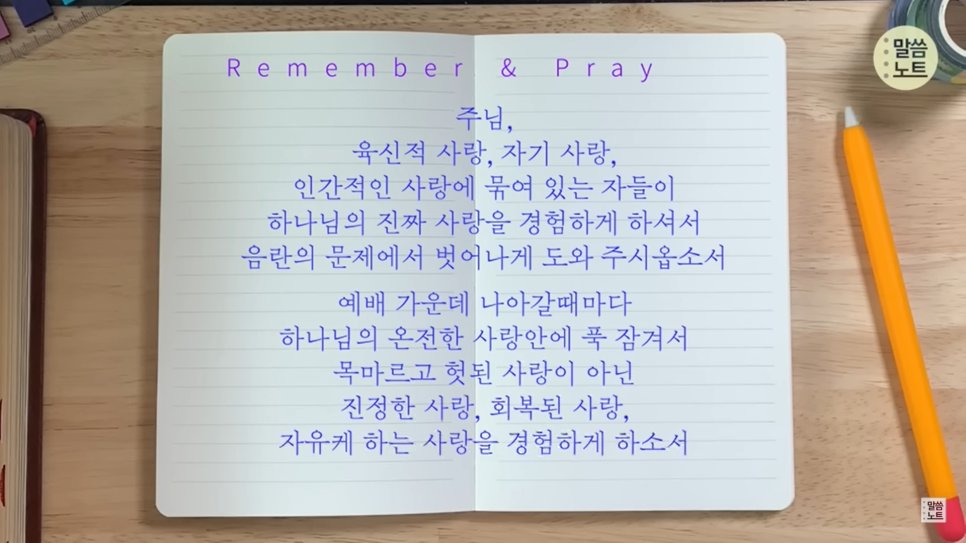 Remember & Pray
주님,
육신적 사랑, 자기 사랑,
인간적인 사랑에 묶여 있는 자들이
하나님의 진짜 사랑을 경험하게 하셔서
음란의 문제에서 벗어나게 도와 주시옵소서
예배 가운데 나아갈때마다
하나님의 온전한 사랑안에 푹 잠겨서
목마르고 헛된 사랑이 아닌
진정한 사랑, 회복된 사랑,
자유케 하는 사랑을 경험하게 하소서
말씀
노트
말씀
노트